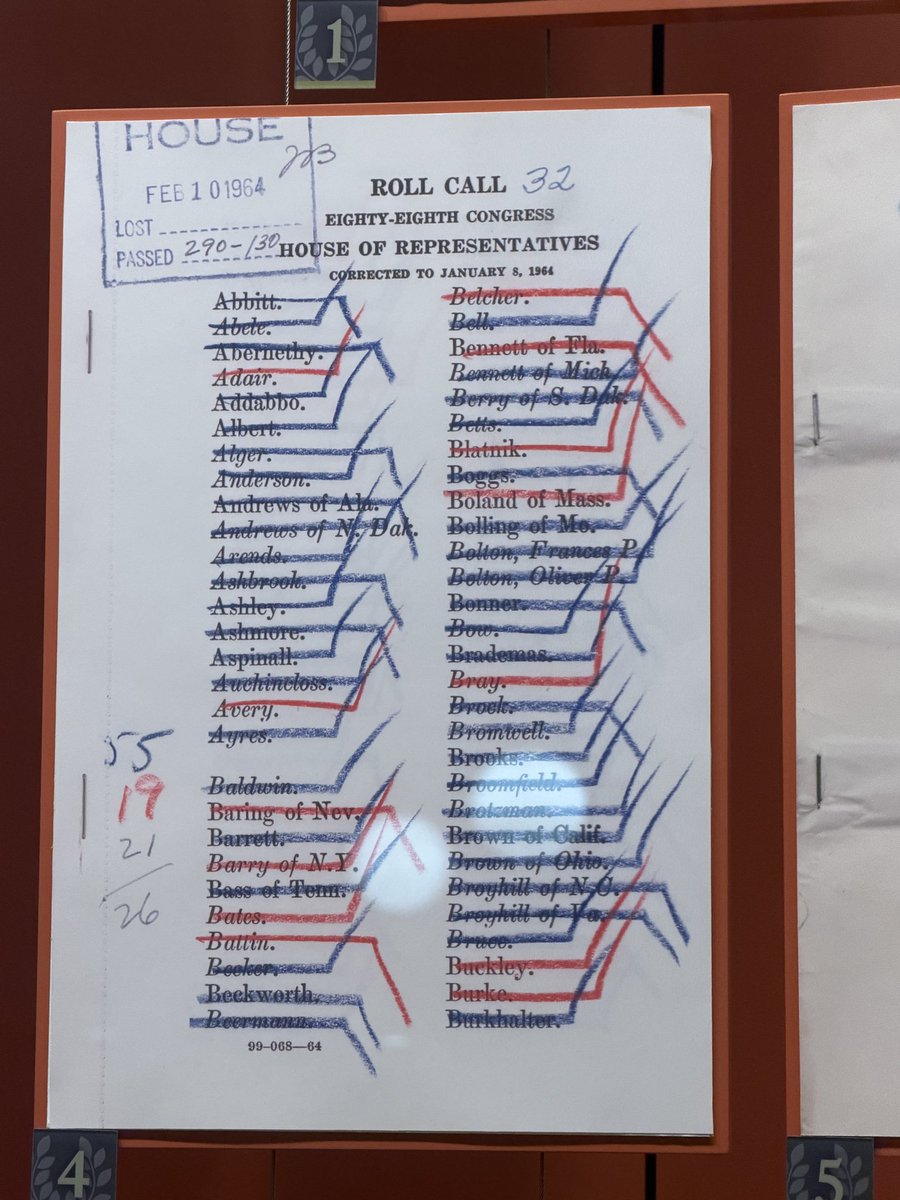 1
HOUSE
223
FEB 10 1964
LOST
PASSED 290-130
ROLL CALL 32
EIGHTY-EIGHTH CONGRESS
HOUSE OF REPRESENTATIVES
CORRECTED TO JANUARY 8, 1964
Abbitt.
Abele.
Abernethy.
Adair.
Addabbo.
Albert.
Alger.
Anderson.
Andrews of Ala.
Andrews of N. Dak.
Arends.
Ashbrook.
Ashley.
Ashmore.
Aspinall.
Auchincloss.
Avery.
Ayres.
Baldwin.
Baring of Nev.
Barrett.
Barry of N.Y.
Bass of Tenn.
Bates.
Battin.
Becker.
Beckworth.
Beermann.
99-068—64
Belcher.
Bell.
Bennett of Fla.
Bennett of Mich.
Berry of S. Dak.
Betts.
Blatnik.
Boggs.
Boland of Mass.
Bolling of Mo.
Bolton, Frances P.
Bolton, Oliver P.
Bonner.
Bow.
Brademas.
Bray.
Brock.
Bromwell.
Brooks.
Broomfield.
Brotzman.
Brown of Calif.
Brown of Ohio.
Broyhill of N.C.
Broyhill of Va.
Bruce.
Buckley.
Burke.
Burkhalter.
55
19
21
26
4
5